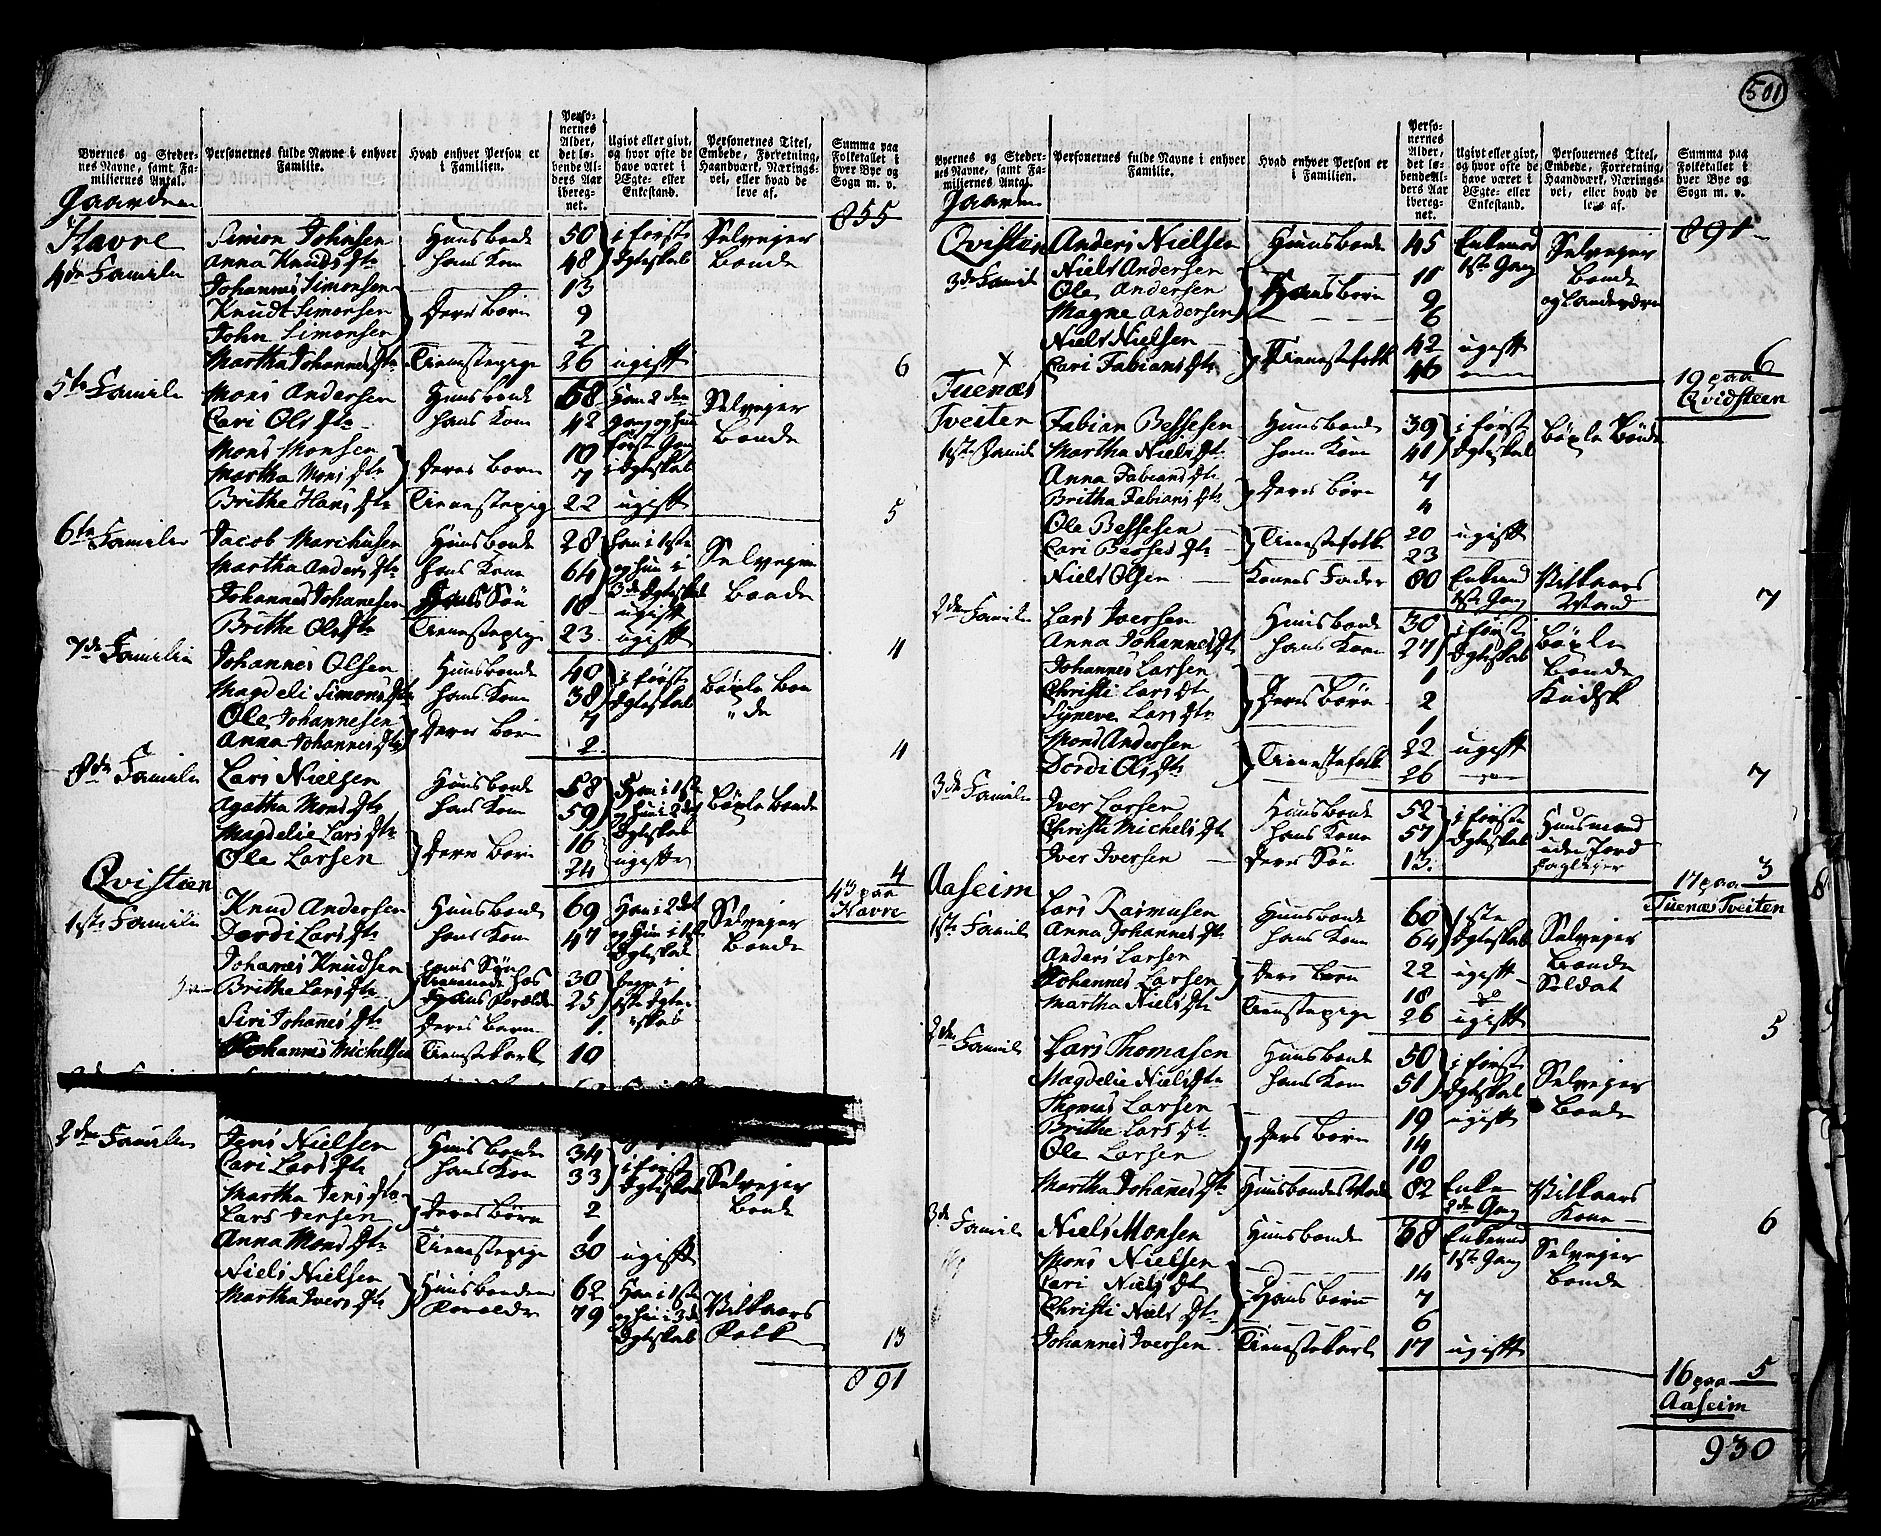 501
Byernes og Steder-
nes Navne, samt Fa-
miliernes Antal.
Personernes fulde Navne i enhver
Familie.
Hvad enhver Person er
i Familien.
Perso-
nernes
Alder,
det lø-
bende Al-
ders Aar
iberegnet.
Ugivt eller givt,
og hvor ofte de
have været i
Ægte- eller
Enkestand.
Personernes Titel,
Embede, Forretning,
Haandværk, Nærings-
vei, eller hvad de
leve af.
Summa paa
Folketallet i
hver Bye og
Sogn m. v.
Gaarden
855
Havre
4de Familie
Simon Johnsen Huusbonde 50 i første Selvejer
Anna Knuds Dtr hans Kone 48 Ægteskab Bonde
Johannes Simonsen 13
Knudt Simonsen Deres Børn 9
John Simonsen 2
Martha Johannes Dtr Tienestepige 26 ugift 6
5te Familie
Mons Andersen Huusbonde 68 Han 2den Selvejer
Cari Ols Dtr hans Kone 42 gang og hun Bonde
Mons Monsen 10 første Gang
Martha Mons Dtr Deres Børn 7 i Ægteskab
Brithe Hans Dtr Tienestepig 22 ugift 5
6te Familie
Jacob Marchusen Huusbonde 28 han i 1ste Selvejer
Martha Anders Dtr hans Kone 64 og hun i Bonde
Johannes Johanesen Hans Søn 18 3de Ægteskab ugift
Brithe Ols Dtr Tienestepige 23 ugift 4
7de Familie
Johannes Olsen Huusbonde 40 i første Bøxle Bon
Magdeli Simons Dtr hans Kone 38 Ægteskab " de
Ole Johannesen Deres Børn 7
Anna Johannes Dtr 2 4
8de Familie
Lars Nielsen Huusbonde 58 Han i 1ste
Agatha Mons Dtr hans Kone 59 og hun i 2det Bøxle Bonde
Magdelie Lars Dtr Deres Børn 16 Ægteskab
Ole Larsen 24 ugifte 4
43 paa
Havre
Qvisteen
1ste Familie
Knud Andersen Huusbonde 69 Han i 2det Selvejer
Dordi Lars Dtr hans Kone 47 og Hun i 1ste Bonde
Ægteskab
Johanes Knudsen hans Søn 30 begge i
Brithe Lars Dtr 25 1ste Ægte-
Siri Johanes Dtr Deres Barn 1. skab
Johannes Michelsen Tienestekarl 10
2den Familie
Jens Nielsen Huusbonde 34 i første Selvejer
Cari Lars Dtr hans Kone 33 Ægteskab Bonde
Martha Jens Dtr Deres Børn 2
Lars Jensen 1
Anna Mons Dtr Tienestepige 30 ugift
Niels Nielsen Huusbondens 62 Han i 1ste Vilkaars
Martha Ivers Dtr Forældre 79 og hun i 3de Folk
Ægteskab 13
891
Byernes og Steder-
nes Navne, samt Fa-
miliernes Antal.
Personernes fulde Navne i enhver
Familie.
Hvad enhver Person er
i Familien.
Perso-
nernes
Alder,
det lø-
bende Al-
ders Aar
iberegnet.
Ugivt eller givt,
og hvor ofte de
have været i
Ægte- eller
Enkestand.
Personernes Titel,
Embede, Forretning,
Haandværk, Nærings-
vei, eller hvad de
leve af.
Summa paa
Folketallet i
hver Bye og
Sogn m. v.
Gaarden
891
Qvisteen
3de Famili
Anders Nielsen Huusbonde 45 Enkemand Selvejer
Niels Andersen 11 1ste Gang Bonde
Ole Andersen Hans Børn 9 og Landværn
Magne Andersen 6
Niels Nielsen Tienestefolk 42 ugift
Cari Fabians Dtr 46 6
19 paa
Qvidsteen
Tuenæs
Tveiten
1ste Famili
Fabian Bessesen Huusbonde 39 i første Bøxle Bonde
Martha Niels Dtr hans Kone 41 Ægteskab
Anna Fabians Dtr Deres Børn 7
Britha Fabians Dtr 4
Ole Bessesen Tienestefolk 20 ugift
Cari Besses Dtr 23
Niels Olsen Konens Fader 80 Enkemand Vilkaars
1ste Gang Mand 7
2den Familie
Lars Iversen Huusbonde 30 i første Bøxle
Anna Johannes Dtr hans Kone 27 Ægteskab Bonde
Johannes Larsen 1
Christi Lars Dtr Deres Børn 2
Synneve Lars Dtr 1
Mons Andersen Tienestefolk 22 ugift
Dordi Ols Dtr 26 7
3de Familie
Iver Larsen Huusbonde 52 i første Huusmand
Christi Michels Dtr hans Kone 57 Ægteskab uden Jord
Iver Iversen Deres Søn 13. 3
17 paa
Tuenæs Tveiten
Aaseim
1ste Famili
Lars Rasmusen Huusbonde 60 1ste Selvejer
Anna Johannes Dtr hans Kone 64 Ægteskab Bonde
Anders Larsen Deres Børn 22 ugift Soldat
Johannes Larsen 18
Martha Niels Dtr Tienestepige 26 ugift 5
2den Famili
Lars Thomasen Huusbonde 50 i første Selvejer
Magdelie Niels Dtr hans Kone 51 Ægteskab Bonde
Thomas Larsen 19 ugift
Brithe Lars Dtr Deres Børn 14
Ole Larsen 10
Martha Johanes Dtr Huusbondes Moder 82 Enke Vilkaars
2den Gang Kone 6
3de Famili
Niels Monsen Huusbonde 38 Enkemand Selvejer
Mons Nielsen 14 1ste Gang Bonde
Cari Niels Dtr Hans Børn 7
Christi Niels Dtr 6
Johannes Iversen Tienestekarl 17 ugift 5
16 paa
Aaseim
930